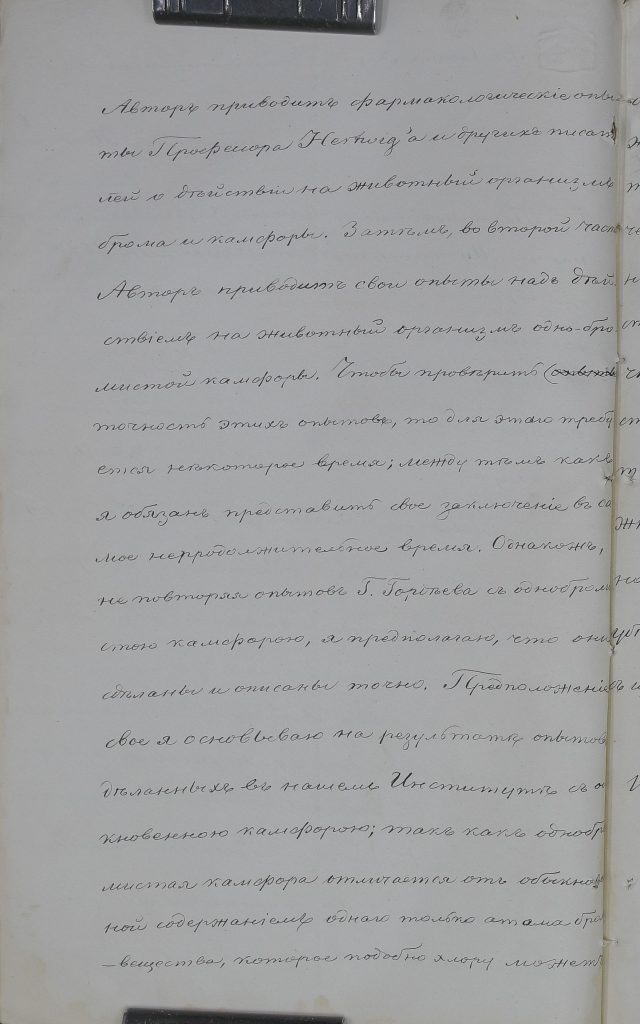 Авторъ приводитъ фармакологическіе опы
ты Профессора Hertwig'а и другихъ писат
лей о дѣйствіи на животный организмъ
брома и камфоры. Затѣмъ, во второй част
Авторъ приводитъ свои опыты надъ дѣй
ствіемъ на животный организмъ одно-бро
мистой камфоры. Чтобы провѣрить
точность этихъ опытовъ, то для этаго требу
ется нѣкоторое время; между тѣмъ какъ
я обязанъ представить свое заключеніе въ са
мое непродолжительное время. Однакожъ,
не повторяя опытовъ Г. съ однобром
стою камфорою, я предполагаю, что они
сдѣланы и описаны точно. Предположеніе
свое я основываю на результатѣ опытовъ
дѣланныхъ въ нашемъ Институтѣ съ о
кновенною камфорою; такъ какъ однобр
мистая камфора отличается отъ обыкнов
ной содержаніемъ однаго только атома бро
–вещества, которое подобно хлору можетъ